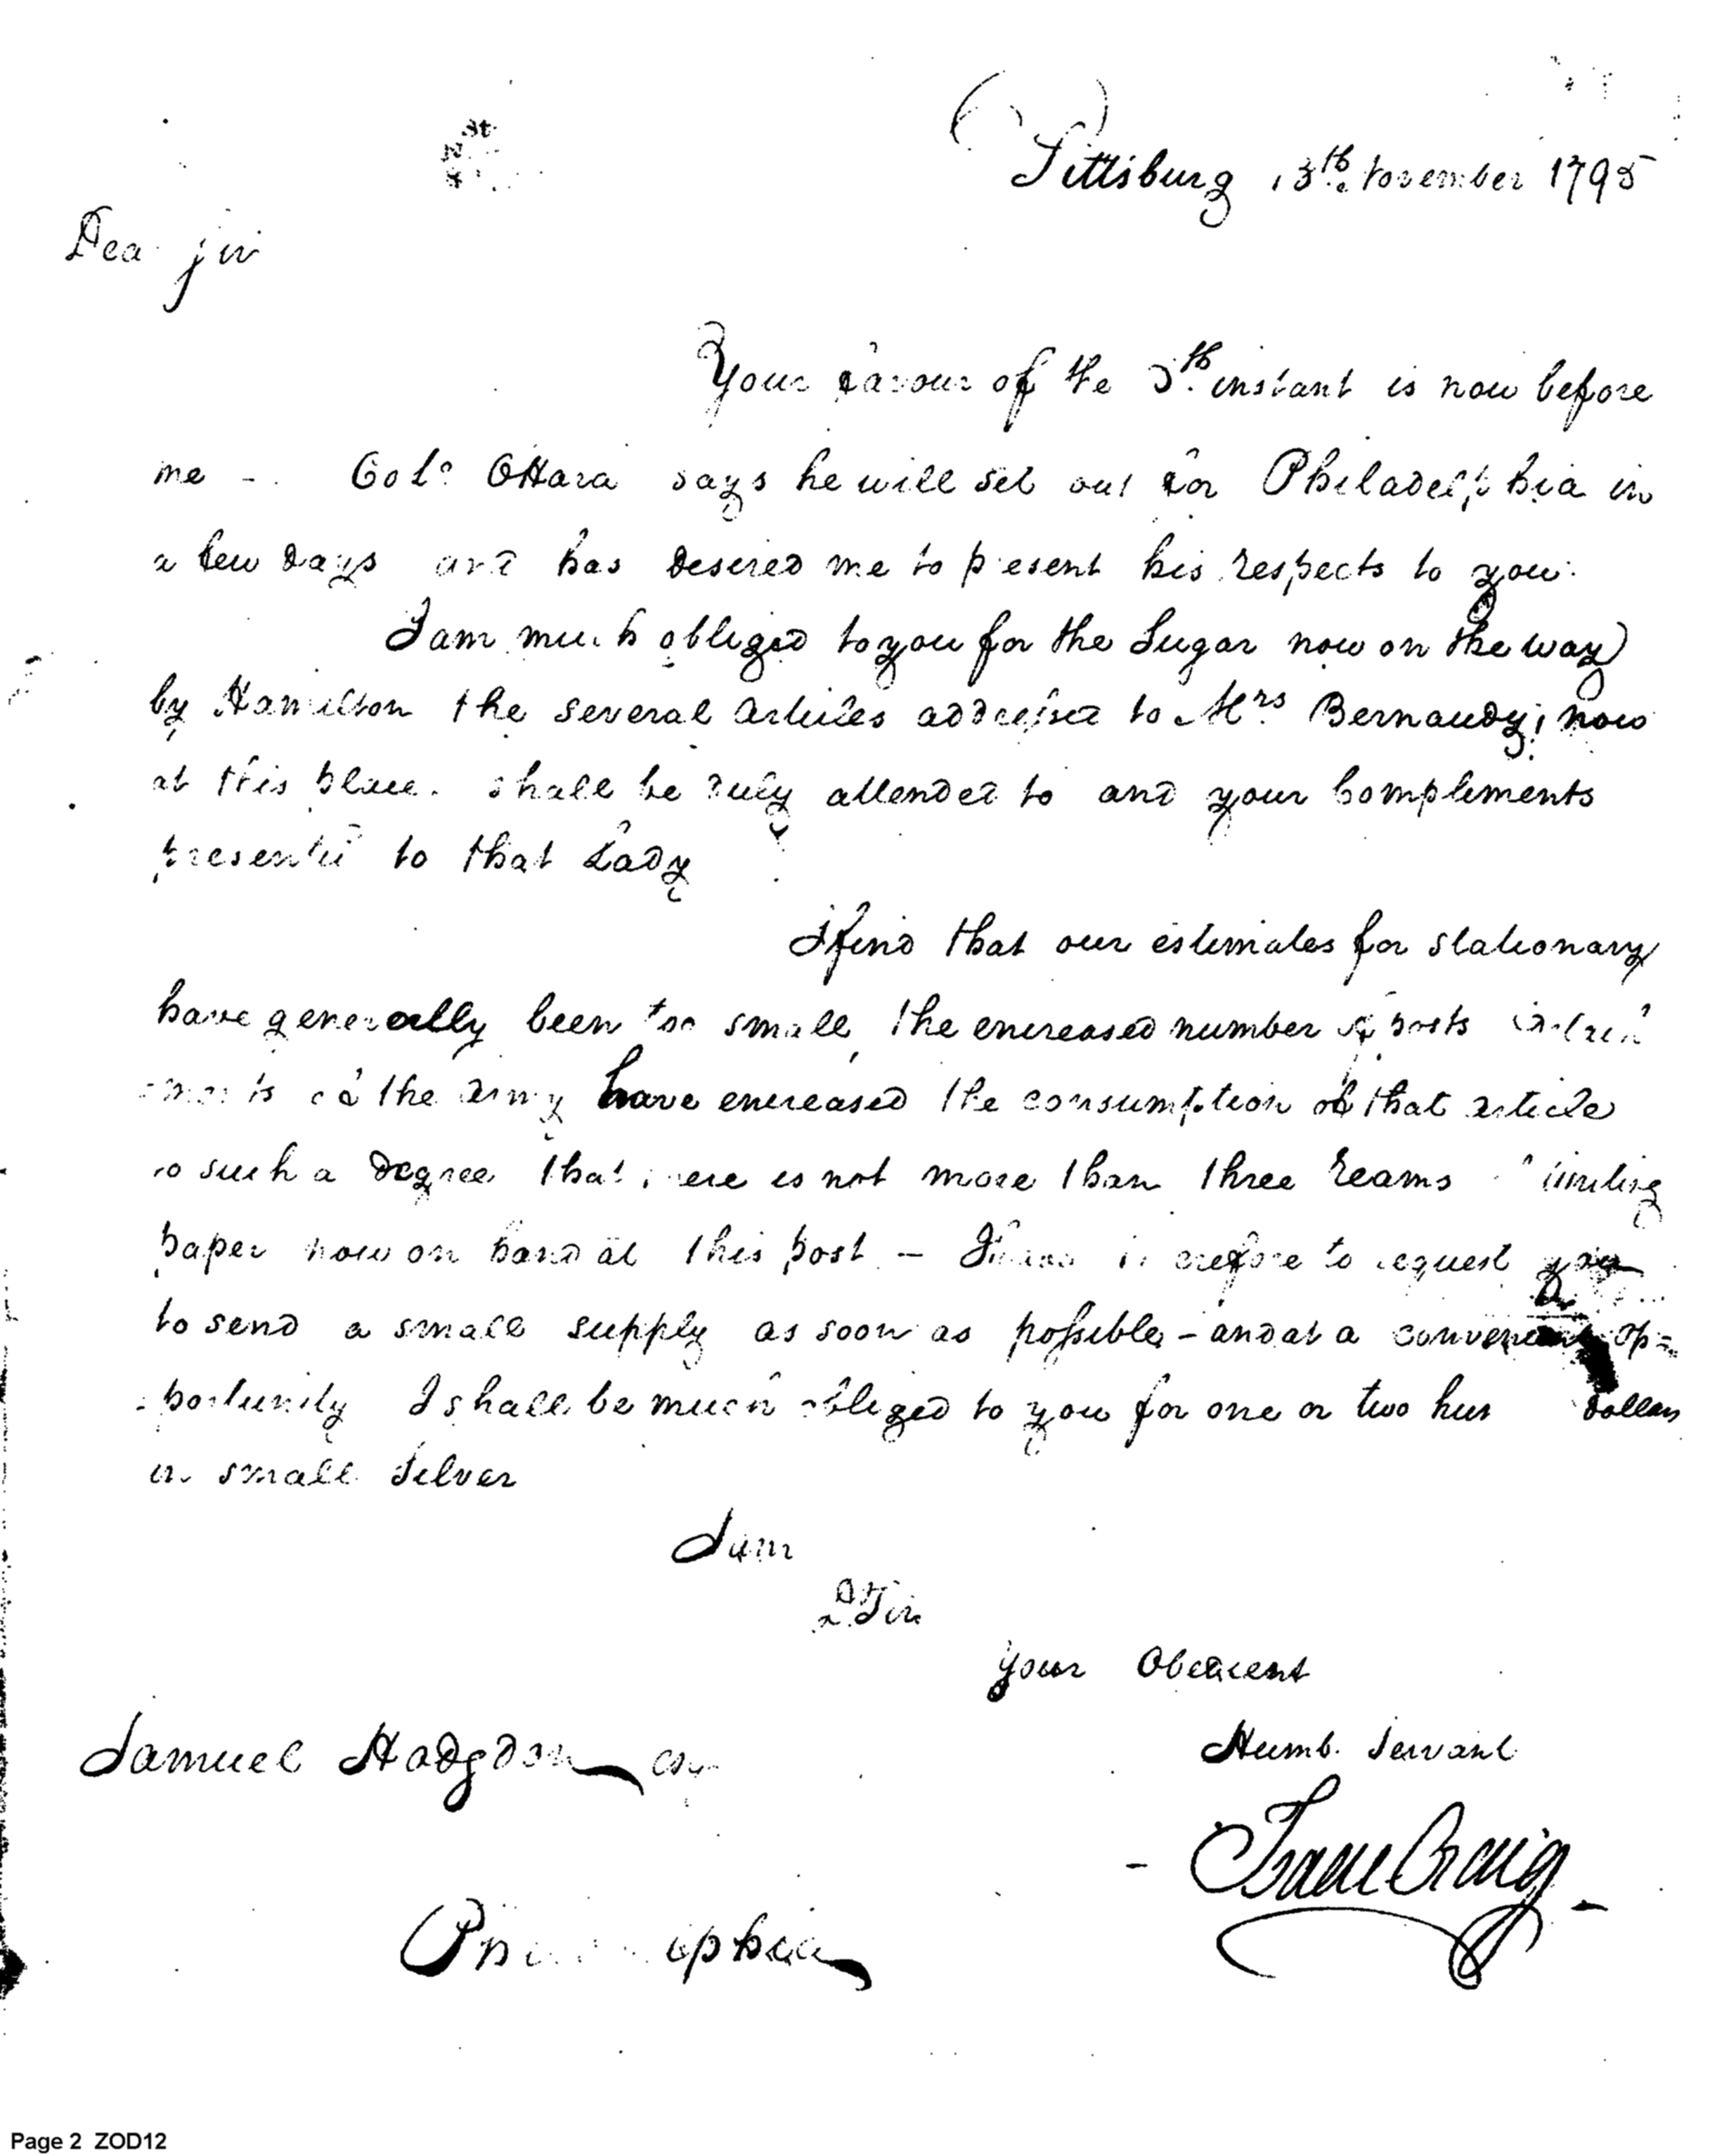 Pittsburg 13th November 1795
Dear Sir
Your favour of the 5th instant is now before
me - Colo OHara says he will set out for Philadelphia in
a few days and has desired me to present his respects to you.
I am much obliged to you for the Sugar now on the way
by Hamilton the several Articles addressed to Mrs Bernaudy, now
at this place. shall be duly attended to and your Compliments
presented to that Lady
I find that our estimates for stationary
have generally been too small, the encreased number of posts
of the army have encreased the consumption of that article
to such a degree that there is not more than three reams writing
paper now on hand at this post - I have therefore to request you
to send a small supply as soon as possible - and at a convenient op=
=portunity I shall be much obliged to you for one or two hun dollars
in small Silver
I am
Dr Sir
your Obedient
Humb. Servant
Samuel Hodgdon esq
Isaac Craig
Philadelphia
Page 2 ZOD12